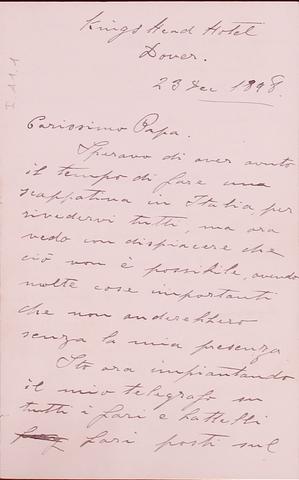 Kings Head Hotel
Dover.
23 Dec 1898.
I.1.1.1
Carissimo Papa.
Speravo di aver avuto
il tempo di fare una
scappatina in Italia per
rivedervi tutti, ma ora
vedo con dispiacere che
ciò non è possibile, avendo
molte cose importanti
che non anderebbero
senza la mia presenza
Sto ora impiantando
il mio telegrafo su
tutti i fari e battelli
fari posti sul